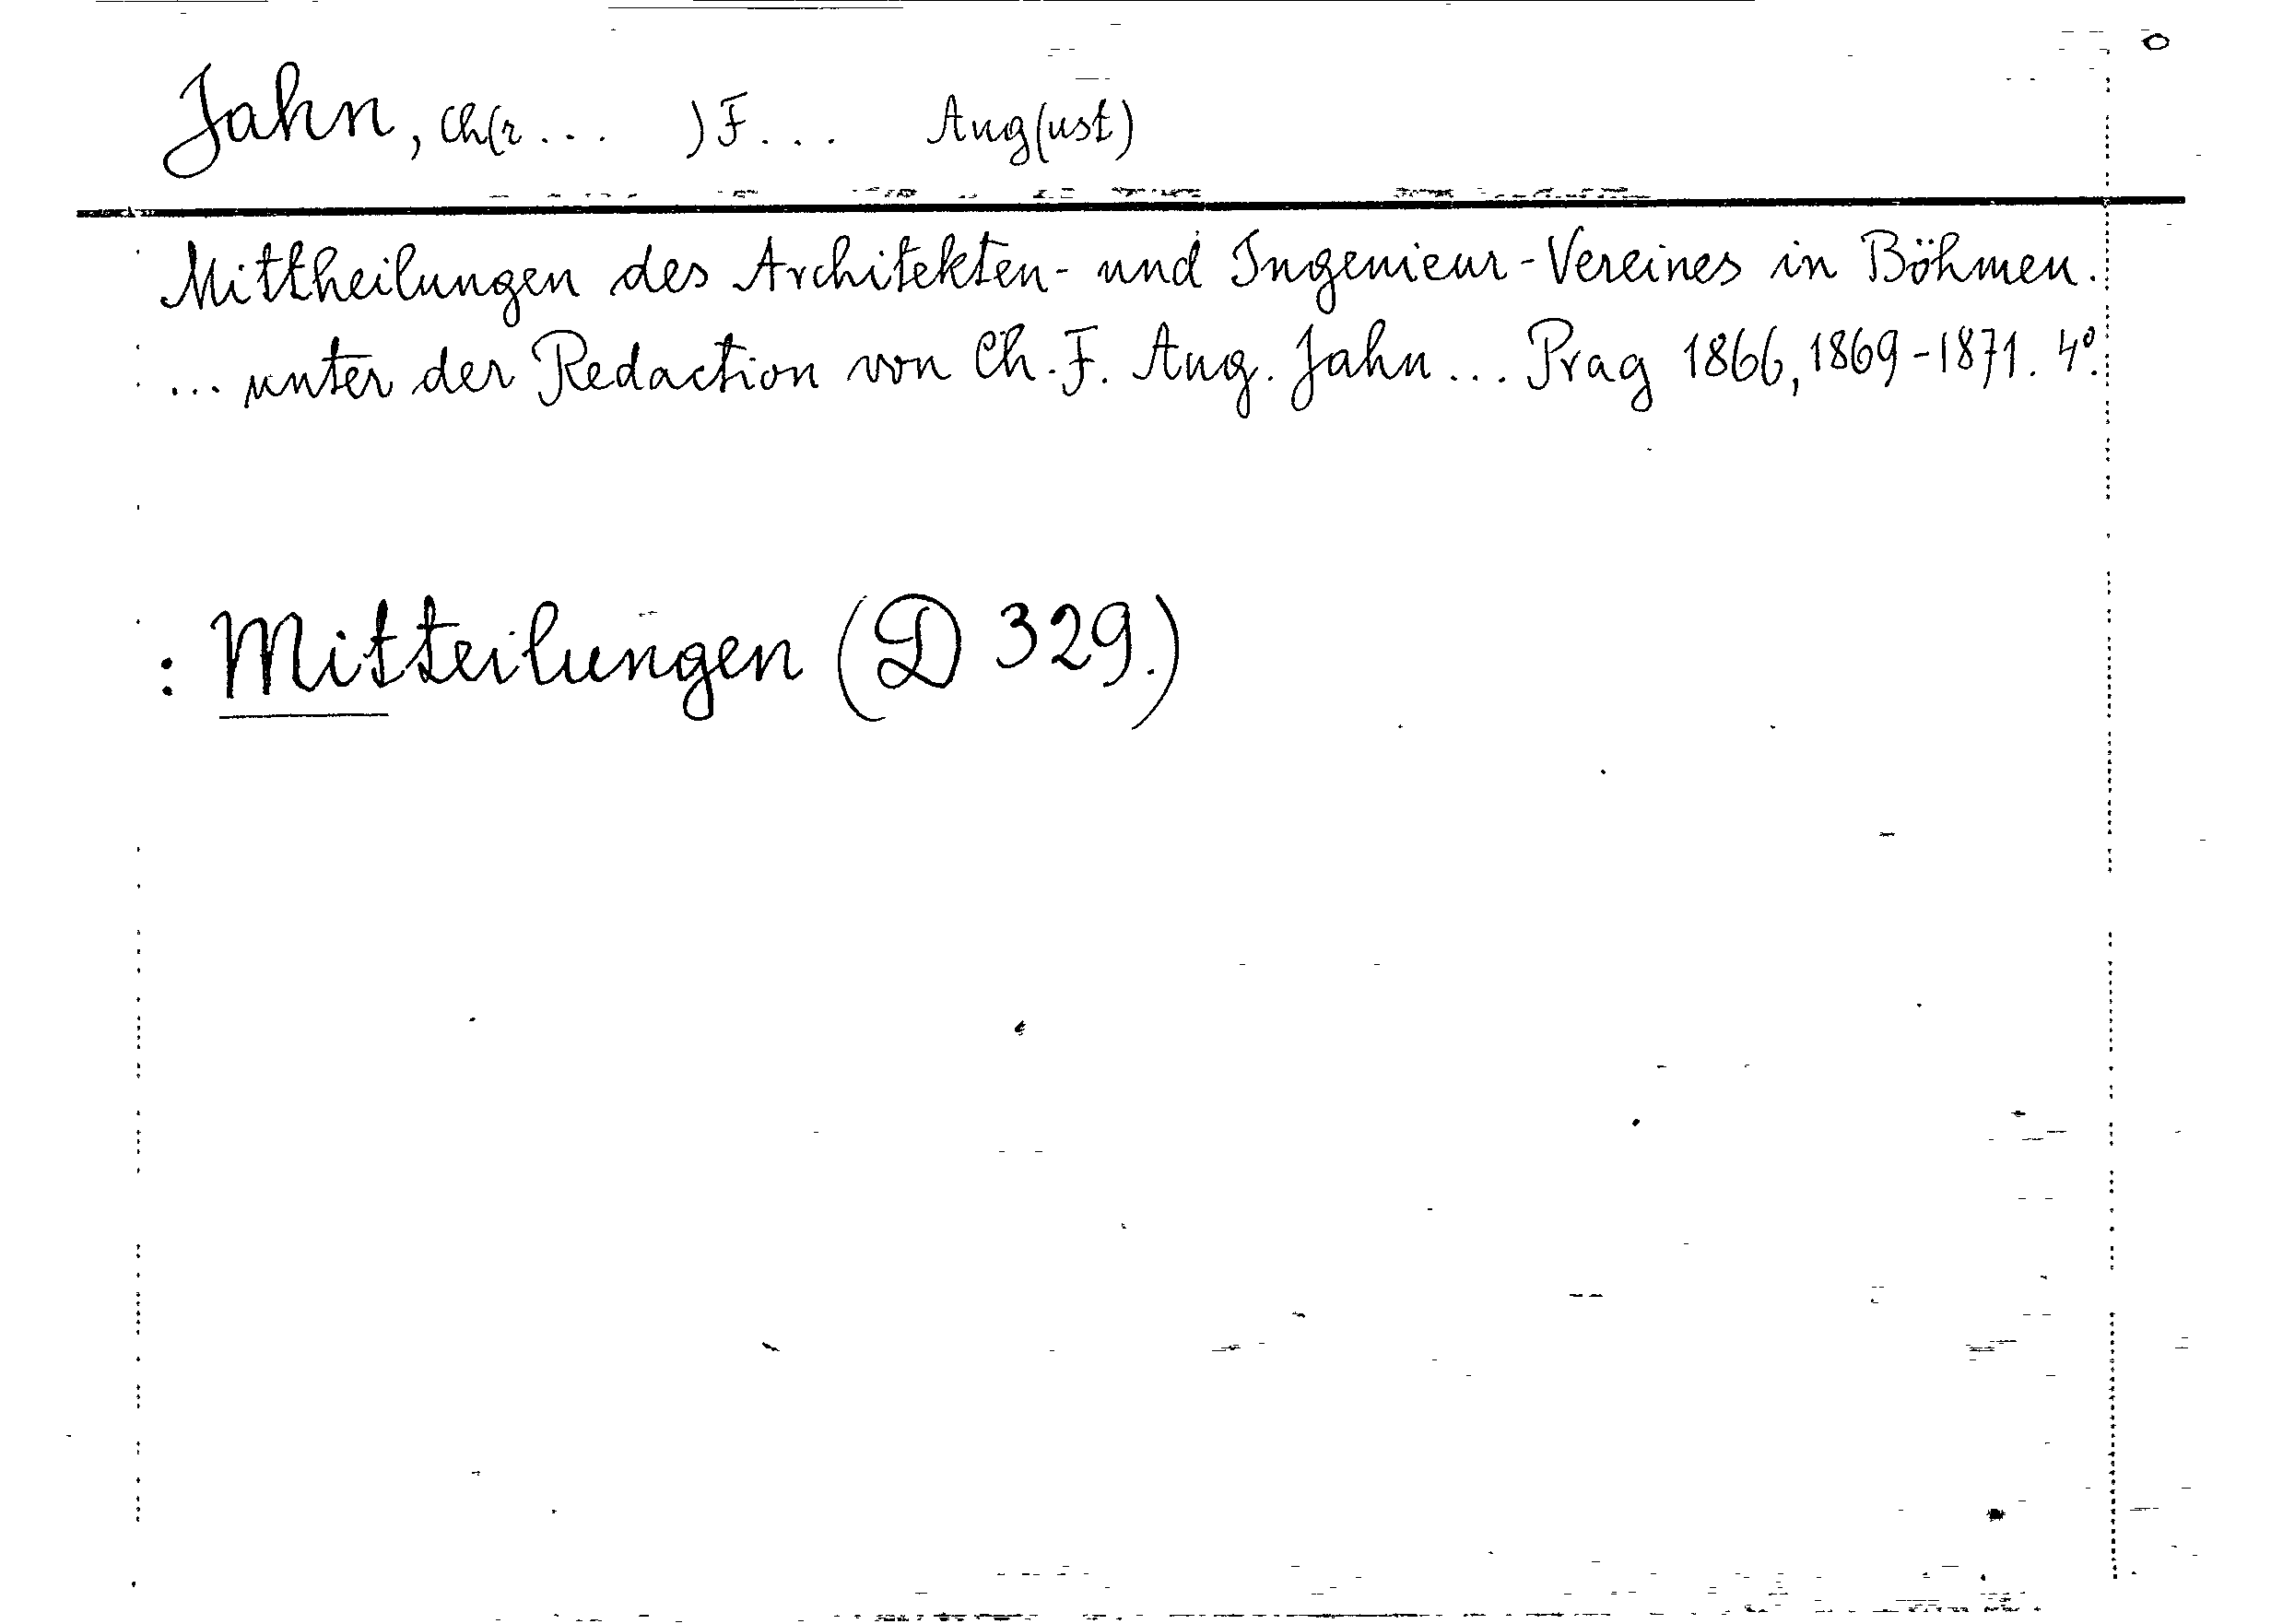 Jahn, Ch(r... )F... Aug(ust)
Mittheilungen des Architekten- und Ingenieur-Vereines in Böhmen.
... unter der Redaction von Ch. F. Aug. Jahn... Prag 1866, 1869-1871. 4°.
: Mitteilungen (D 329.)